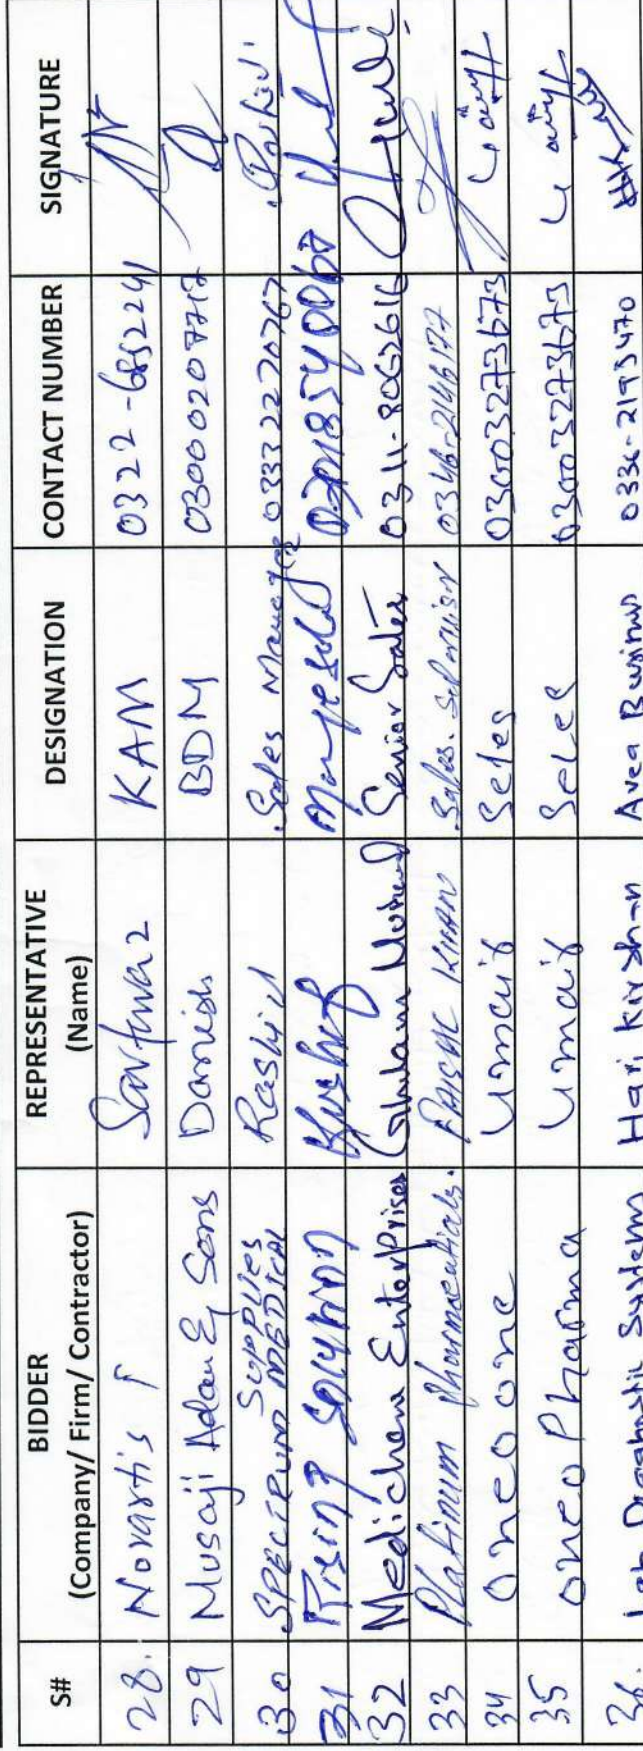 S# BIDDER (Company/ Firm/ Contractor) REPRESENTATIVE (Name) DESIGNATION CONTACT NUMBER SIGNATURE
28. Novartis P Sarfwaz KAM 0322-6852241
29 Musaji Adam & Sons Danish BDM 03000207717
30 SPECTRUM MEDICAL SUPPLIES Rashid Sales Manager 03332220767 Rashid
31 Rising Solution
32 Medichem EnterPrises Ghulam Senior Sales 0311-8062616
33 Platinum Pharmaceuticals. KHAN Sales. 0346-2146177
34 Onco one Umair Seles 03003273673
35 onco Pharma Umair Seles 03003273673
36. Lab Diagnostic Systems Hari Kirshan Area Business 0336-2193470